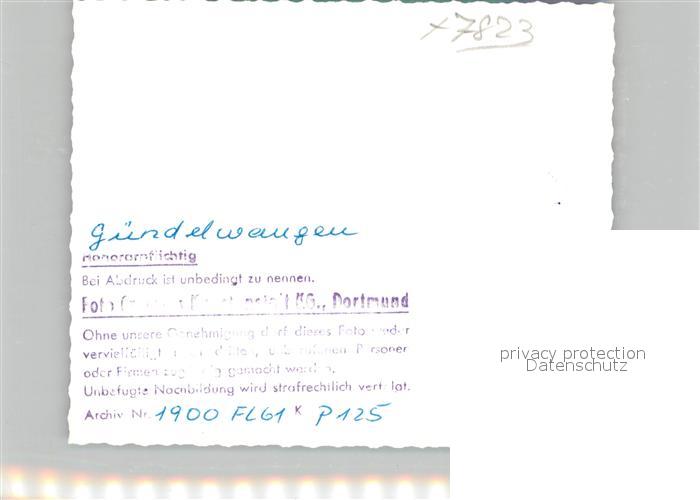 x 7823
Gündelwangen
Honorarpflichtig
Bei Abdruck ist unbedingt zu nennen.
Foto KG., Dortmund
Ohne unsere Genehmigung darf dieses Foto weder
vervielfältigt Personen
oder Firmen gemacht werden.
Unbefugte Nachbildung wird strafrechtlich verfolgt.
Archiv Nr. 1900 FL61 K P125
privacy protection
Datenschutz